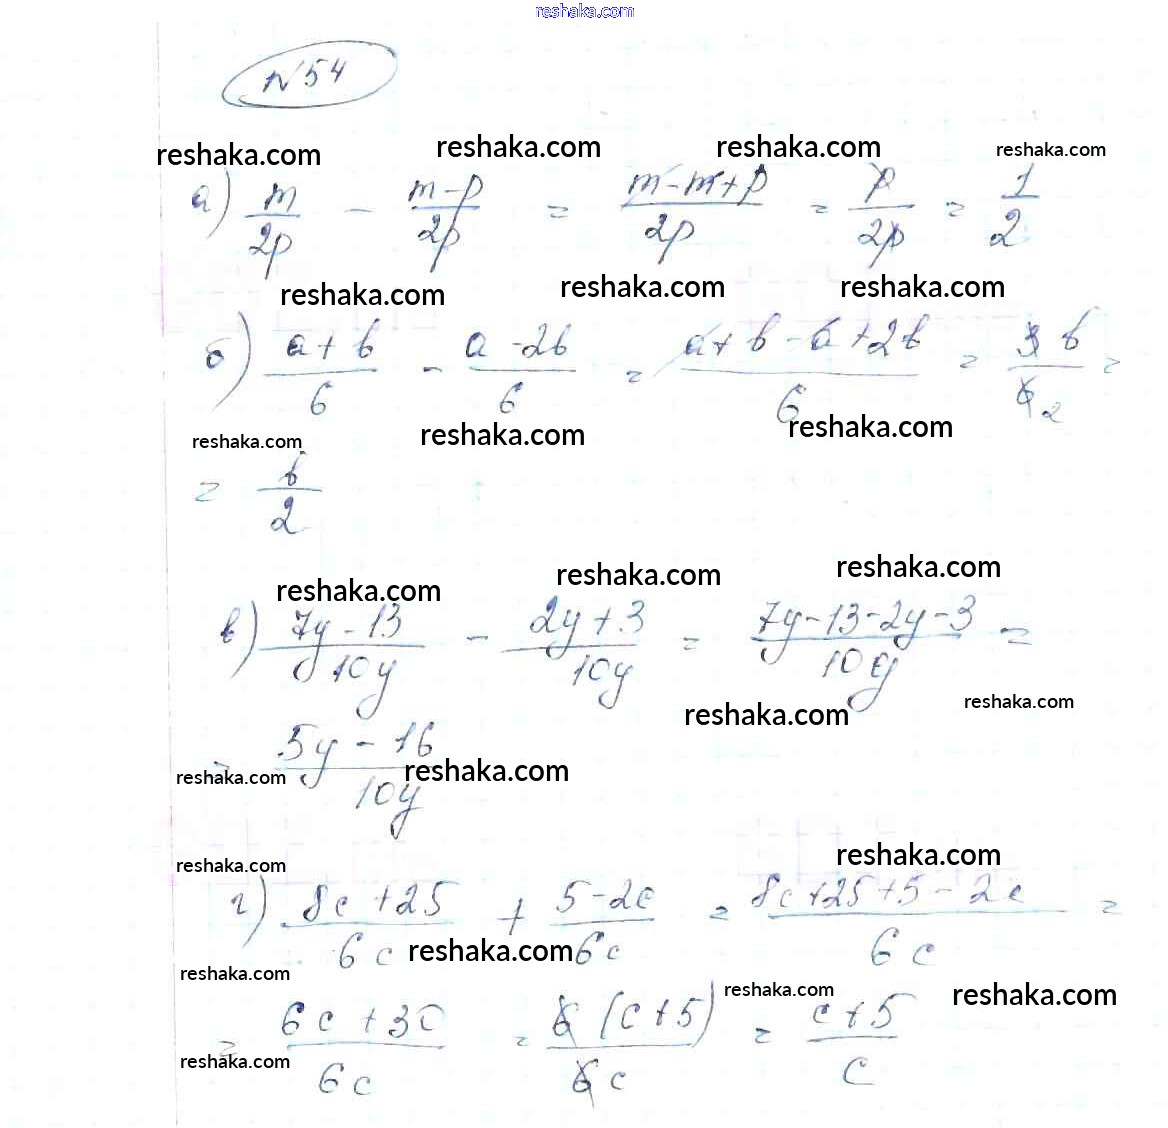 reshaka.com
№54
reshaka.com reshaka.com reshaka.com reshaka.com
а) m/2p - (m-p)/2p = (m-m+p)/2p = p/2p = 1/2
reshaka.com reshaka.com reshaka.com
б) (a+b)/6 - (a-2b)/6 = (a+b-a+2b)/6 = 3b/6 2 =
reshaka.com reshaka.com reshaka.com
= b/2
reshaka.com reshaka.com reshaka.com
в) (7y-13)/10y - (2y+3)/10y = (7y-13-2y-3)/10y =
reshaka.com reshaka.com
= (5y-16)/10y
reshaka.com reshaka.com
reshaka.com reshaka.com
г) (8c+25)/6c + (5-2c)/6c = (8c+25+5-2c)/6c =
reshaka.com reshaka.com
reshaka.com reshaka.com
= (6c+30)/6c = 6(c+5)/6c = (c+5)/c
reshaka.com